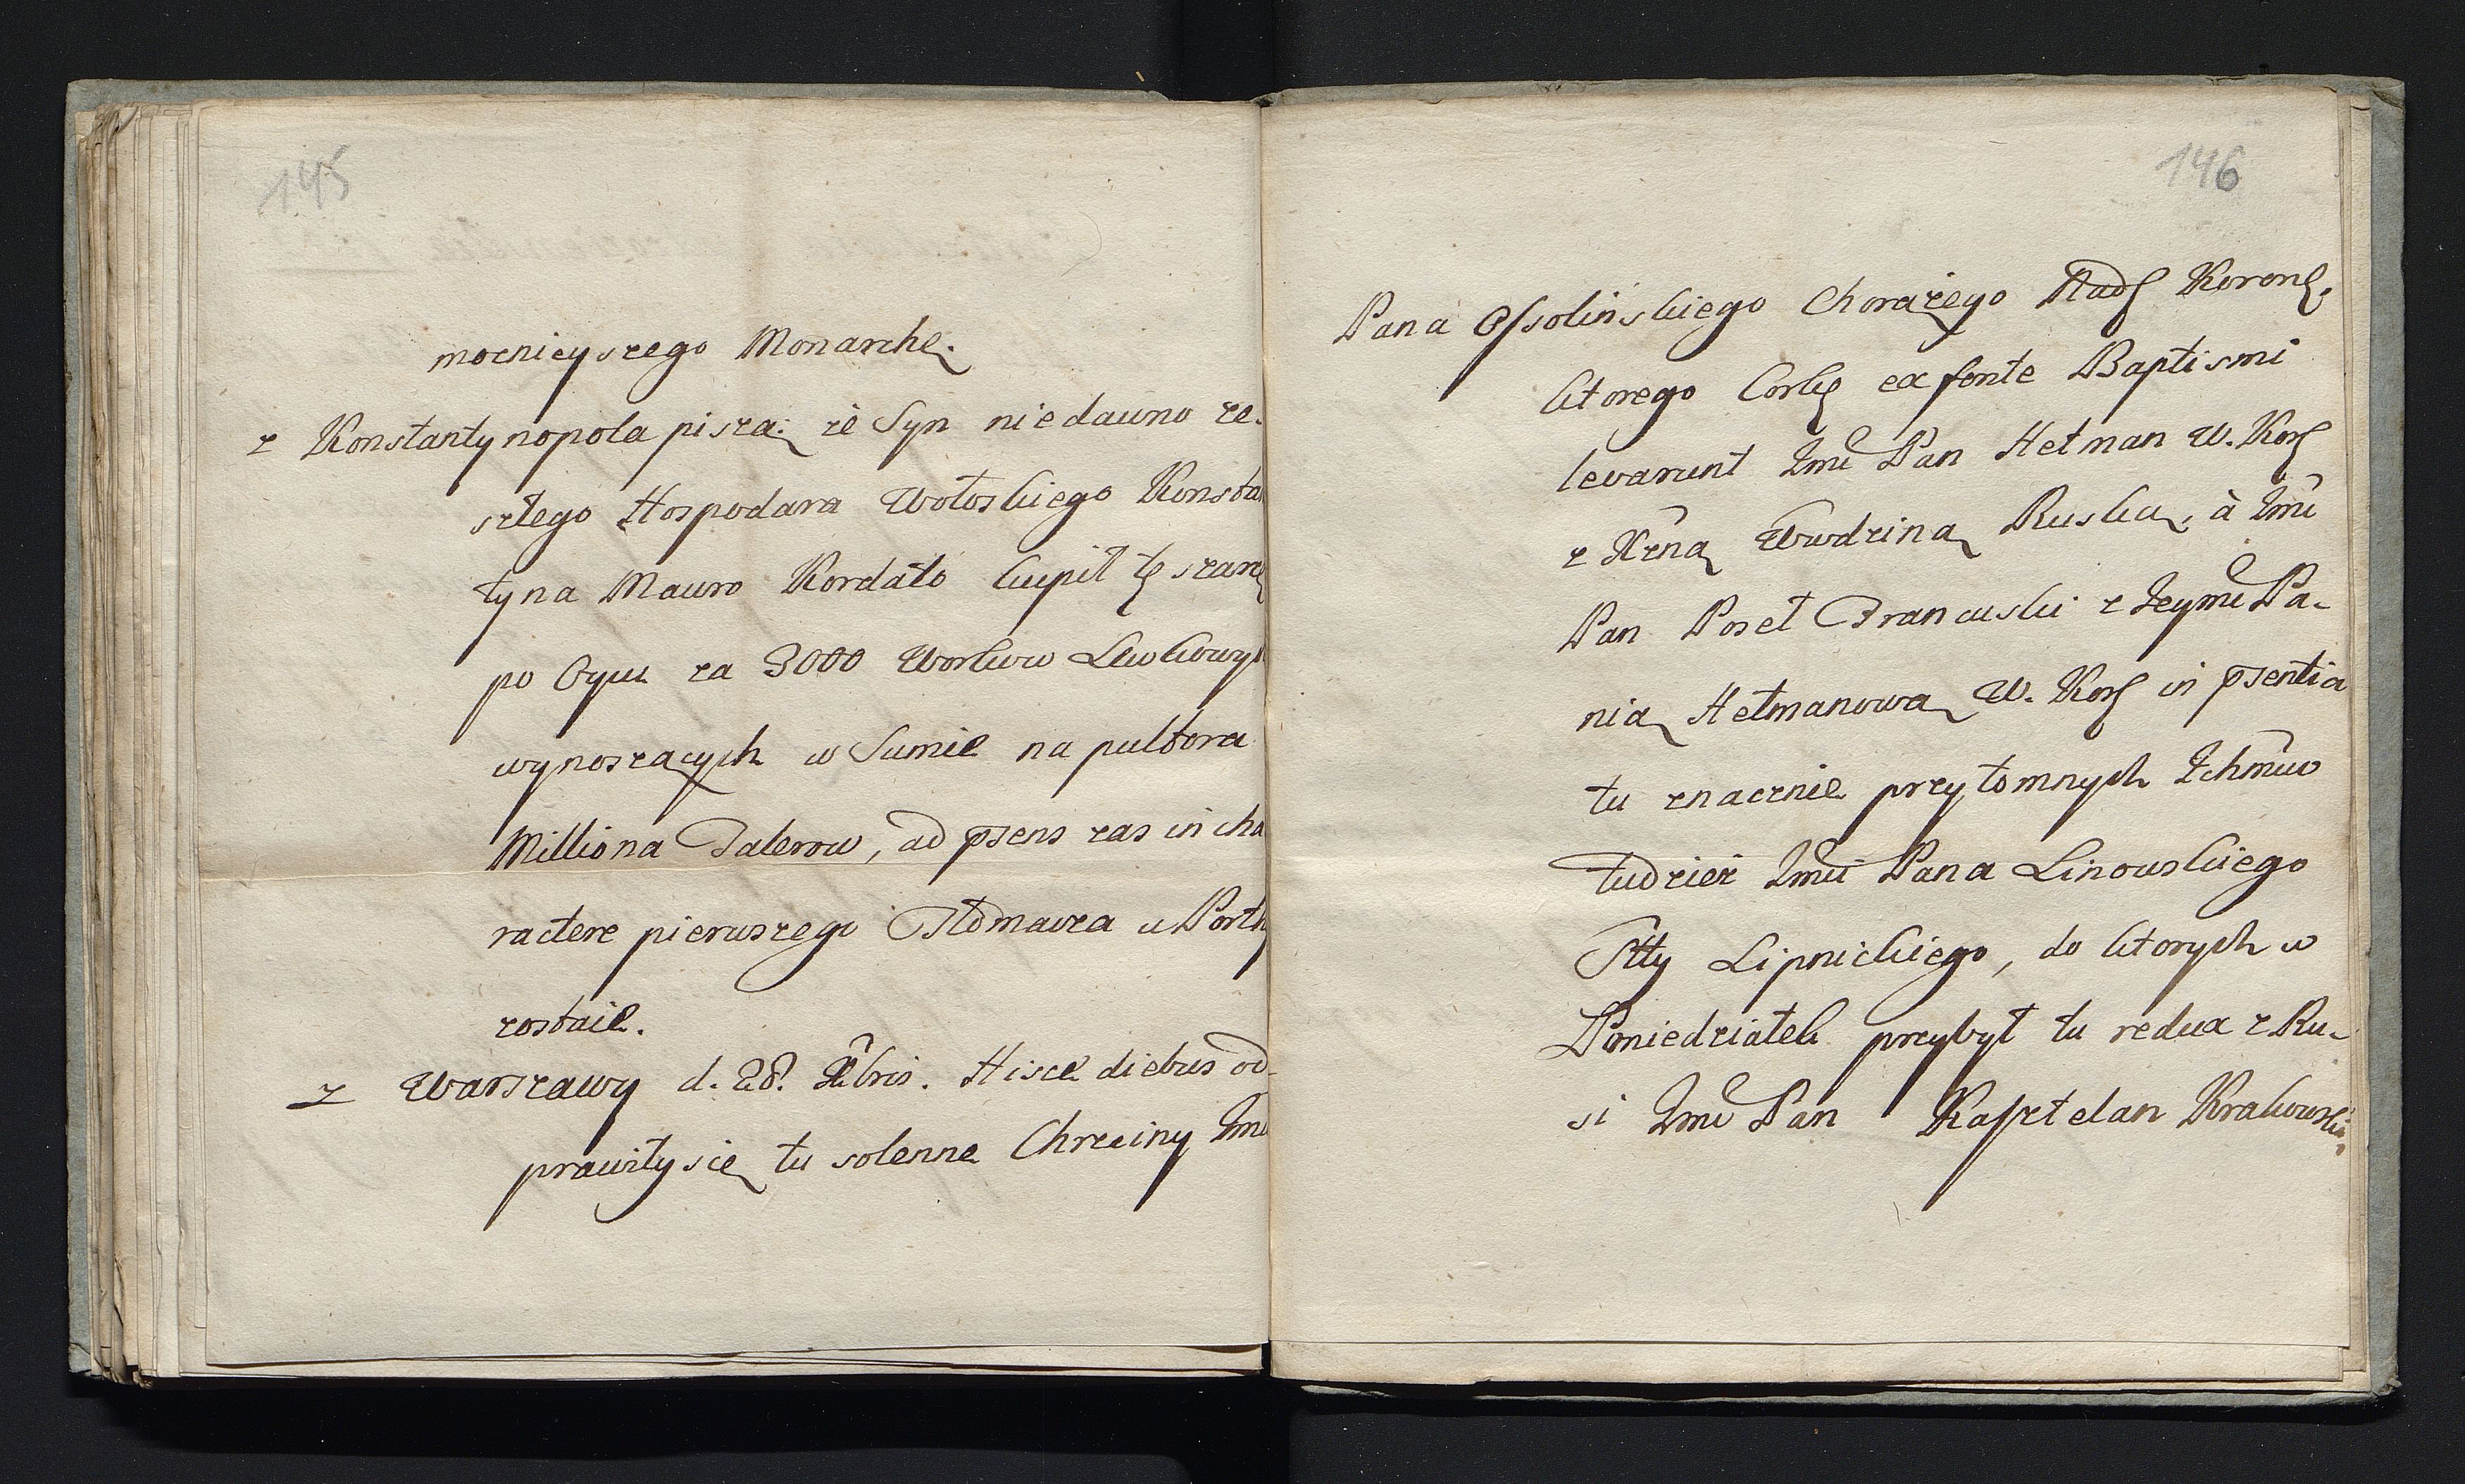 145
mocnieyszego Monarchę.
z Konstantynopola piszą: że Syn niedawno ze-
szłego Hospodara Wołoskiego Konsta
tyna Mauro Kordato kupił tę szarę
po Oycu za 3000 Workuw Lewkowyh
wynoszących w Sumie na pułtora
Milliona Talerow, ad psens zas in cha
ractere pierwszego Tłomacza u Porty
zostaie.
z Warszawy d. 28. Xbris. Hisce diebus od-
prawiły się tu solenne Chrzciny Jmć
146
Pana Ossolińskiego Chorążego Nadꝭ Koronꝭ,
ktorego Corkę ex fonte Baptismi
levarunt Jmć Pan Hetman W. Korꝭ
z Xżną Wwdziną Ruską, à Jmć
Pan Poseł Francuski z Jeymć Pa-
nią Hetmanową W. Korꝭ in psentia
tu znacznie przytomnych Ichmćw
tudzież Jmći Pana Linowskiego
Stty Lipnickiego, do ktorych w
Poniedziałek przybył tu redux z Ru-
si Jmć Pan Kasztelan Krakowski,